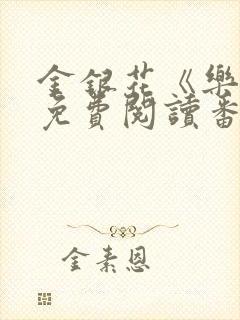 金銀花《樂
免費閱讀番
金素恩